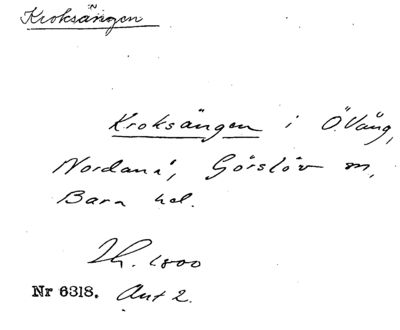 Kroksängen
Kroksängen i Ö. Vång,
Nordanå, Görslöv sn,
Bara hd.
Lh. 1800
Nr 6318. Ant 2.